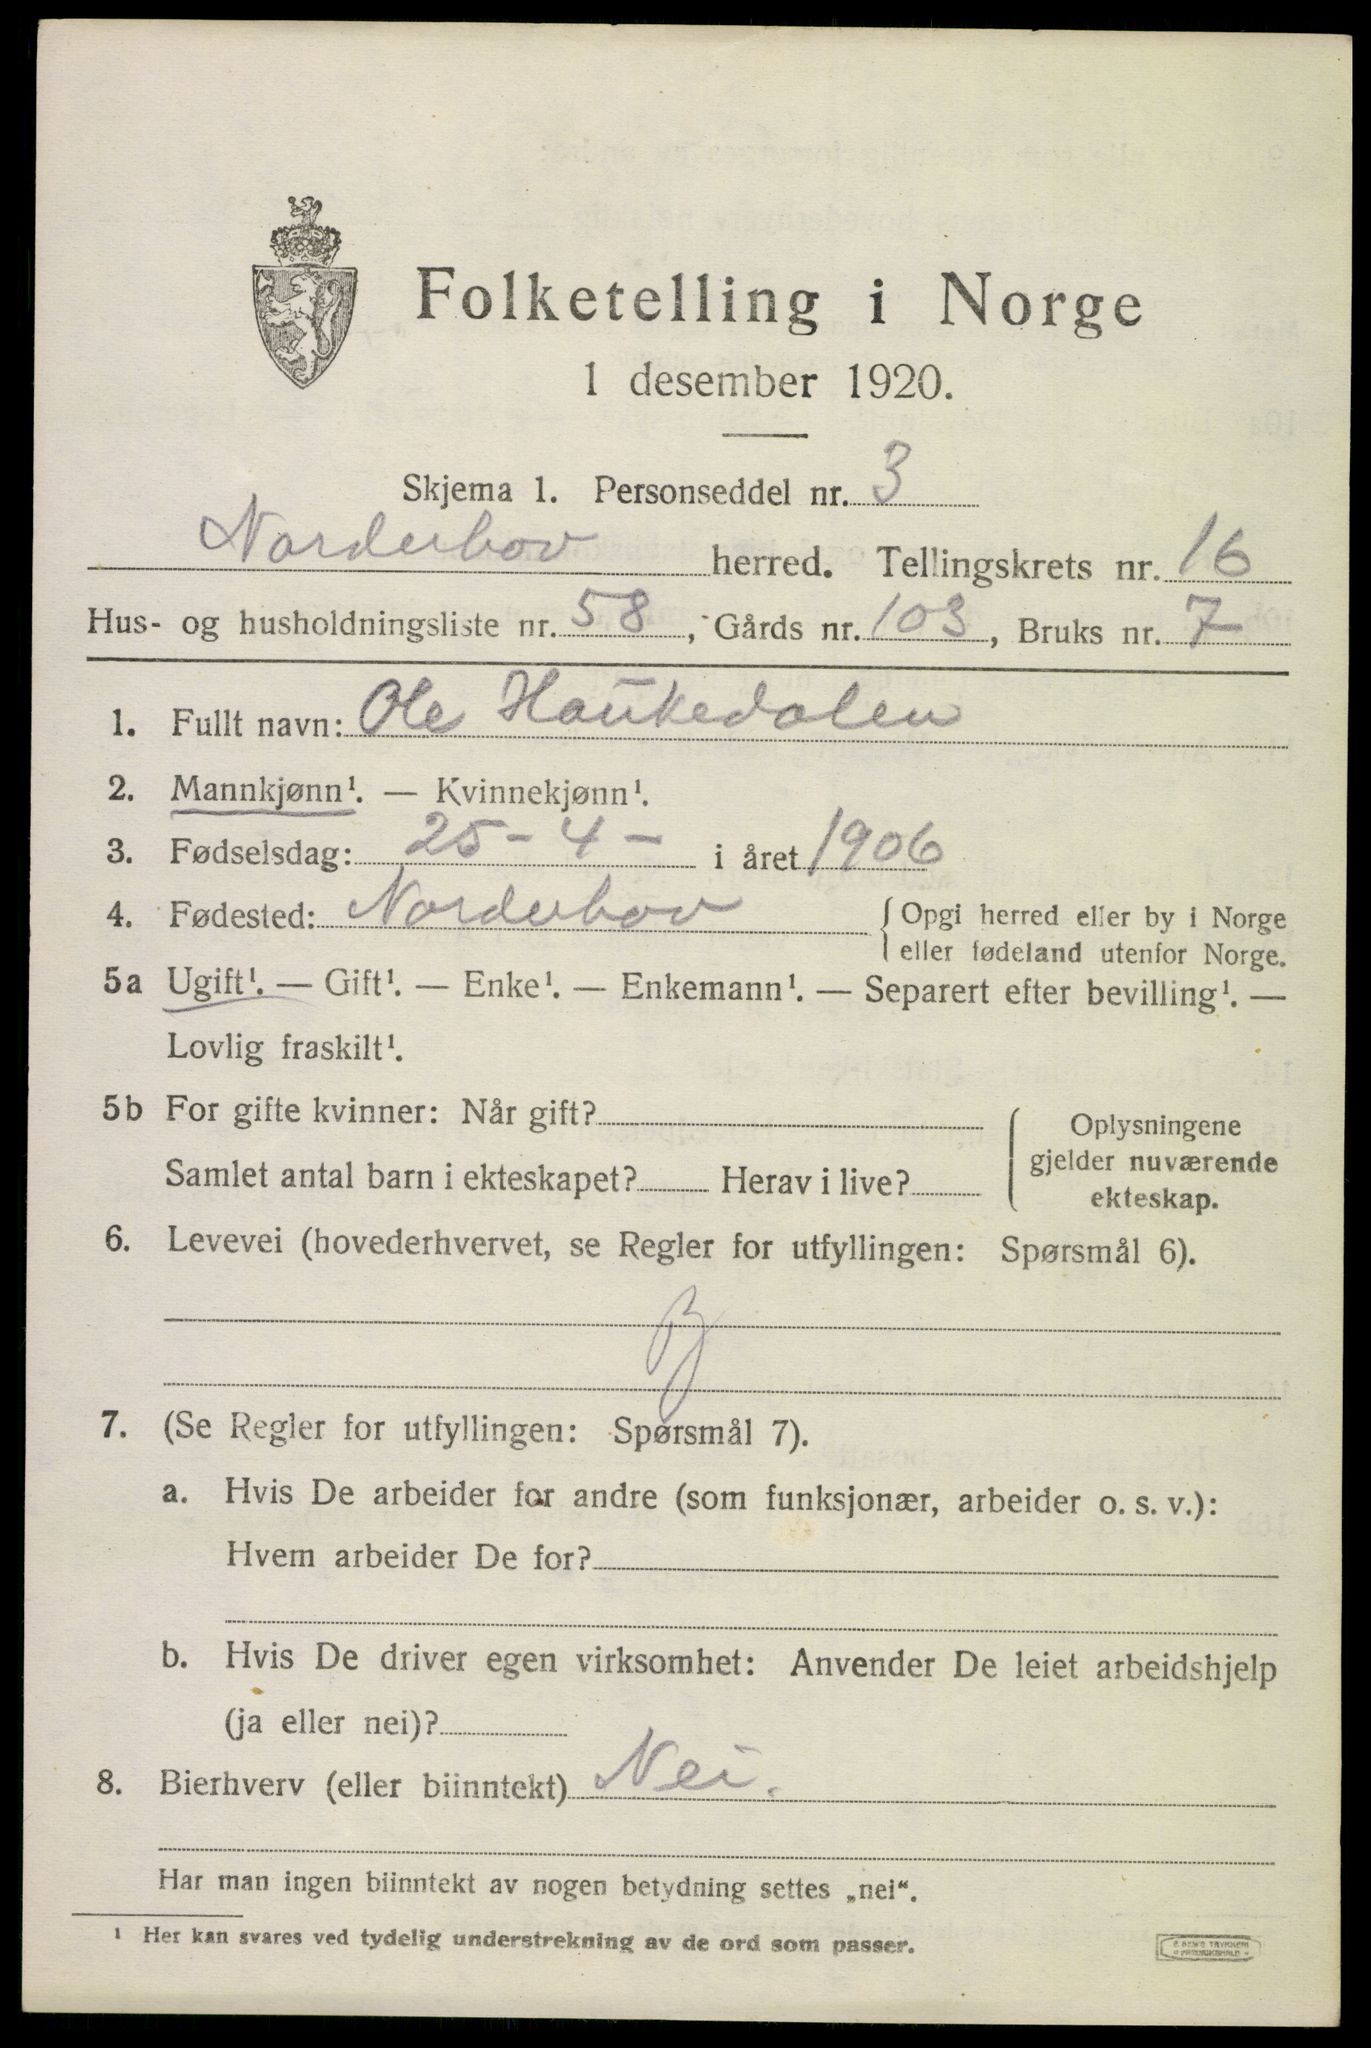 Folketelling i Norge
1 desember 1920.
Skjema 1. Personseddel nr. 3
Norderhov herred. Tellingskrets nr. 16
Hus- og husholdningsliste nr. 58, Gårds nr. 103, Bruks nr. 7
1. Fullt navn: Ole Haukedalen
2. Mannkjønn¹. — Kvinnekjønn¹.
3. Fødselsdag: 25 - 4 - i året 1906
4. Fødested: Norderhov { Opgi herred eller by i Norge
eller fødeland utenfor Norge.
5a Ugift¹. — Gift¹. — Enke¹. — Enkemann¹. — Separert efter bevilling¹. —
Lovlig fraskilt¹.
5b For gifte kvinner: Når gift?
Samlet antal barn i ekteskapet? Herav i live?
Oplysningene
gjelder nuværende
ekteskap.
6. Levevei (hovederhvervet, se Regler for utfyllingen: Spørsmål 6).
B
7. (Se Regler for utfyllingen: Spørsmål 7).
a. Hvis De arbeider for andre (som funksjonær, arbeider o. s. v.):
Hvem arbeider De for?
b. Hvis De driver egen virksomhet: Anvender De leiet arbeidshjelp
(ja eller nei)?
8. Bierhverv (eller biinntekt) Nei.
Har man ingen biinntekt av nogen betydning settes „nei“.
¹ Her kan svares ved tydelig understrekning av de ord som passer.